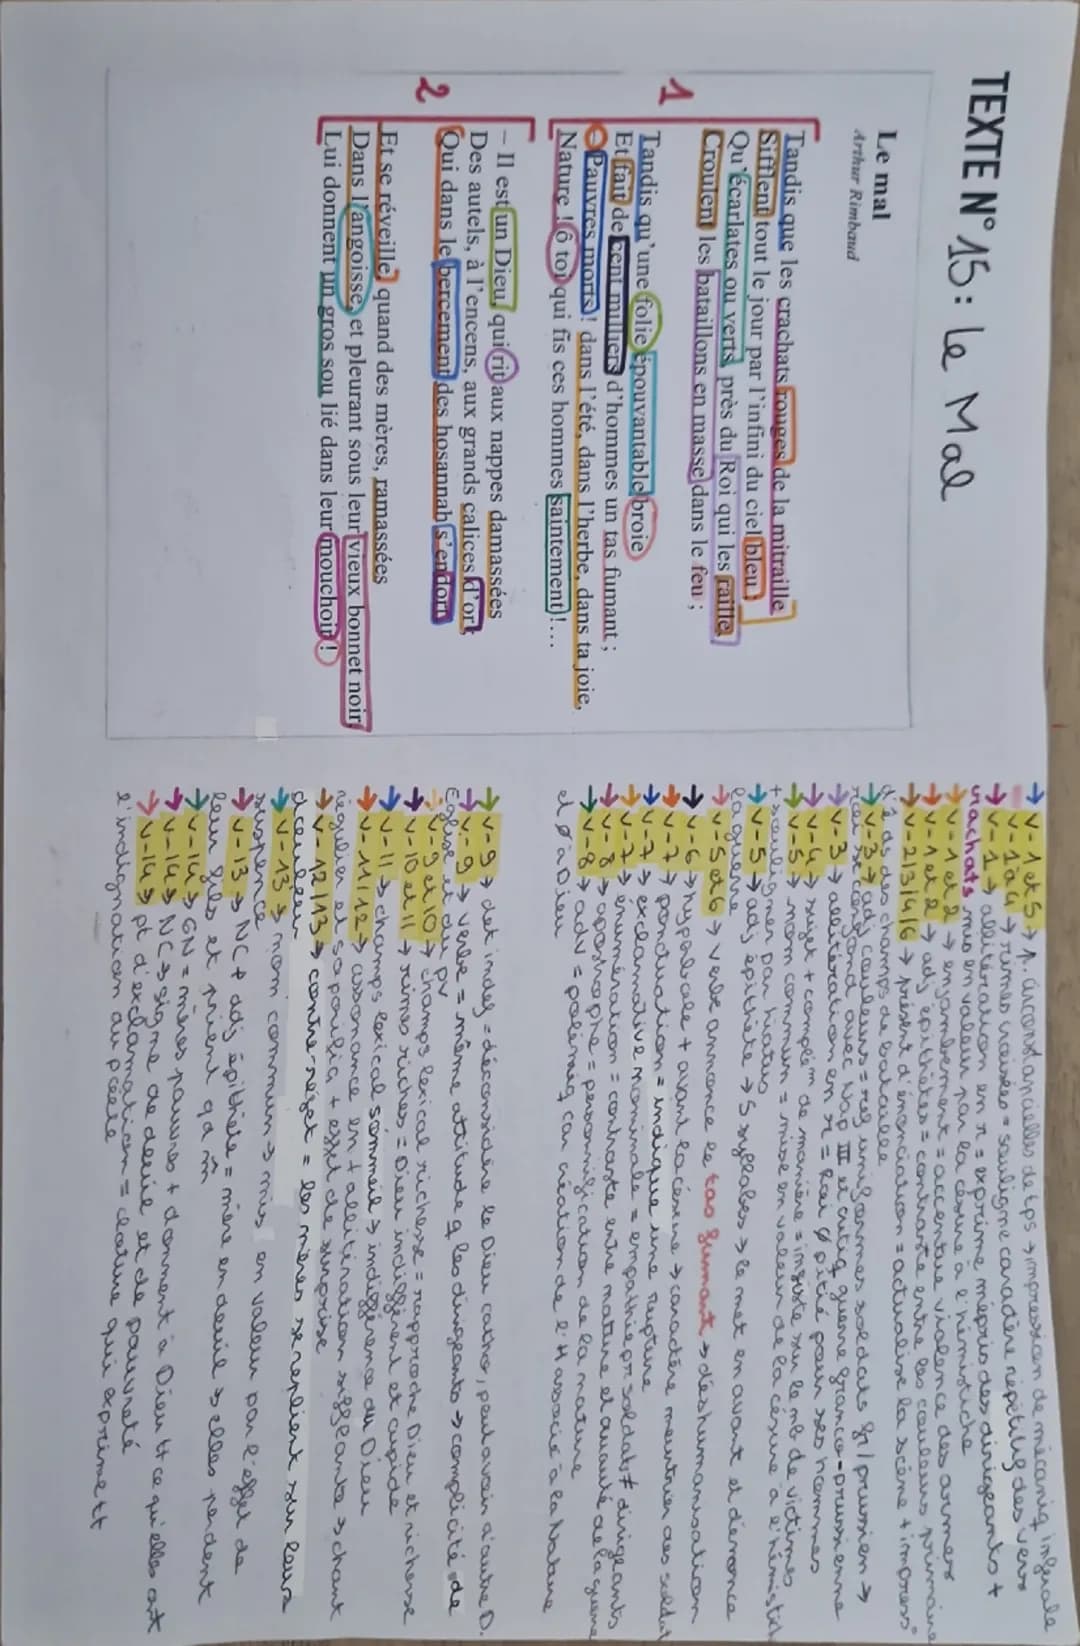 TEXTE N°15: Le Mal
Le mal
Arthur Rimbaud
1
Tandis que les crachats rouges de la mitraille
Sifflent tout le jour par l'infini du ciel bleu ;
Qu'écarlates ou verts, près du Roi qui les raille,
Croulent les bataillons en masse dans le feu ;
Tandis qu'une folie épouvantable broie
Et fait de cent milliers d'hommes un tas fumant ;
– Pauvres morts ! dans l'été, dans l'herbe, dans ta joie,
Nature ! ô toi qui fis ces hommes saintement !...
2
– Il est un Dieu, qui rit aux nappes damassées
Des autels, à l'encens, aux grands calices d'or ;
Qui dans le bercement des hosannah s'endort,
Et se réveille, quand des mères, ramassées
Dans l'angoisse, et pleurant sous leur vieux bonnet noir,
Lui donnent un gros sou lié dans leur mouchoir !
→ v-1 et 5 → p. circonstancielles de tps → impression de mécaniq infernale
→ v-1 à 4 → rimes croisées = souligne caractère répétitif des vers
→ v-1 → allitération en r = exprime mépris des dirigeants +
crachats mis en valeur par la césure à l'hémistiche
→ v-1 et 2 → enjambement = accentue violence des armes
→ v-1 et 2 → adj épithètes = contraste entre les couleurs primaires
→ v-2/3/4/6 → présent d'énonciation = actualise la scène + impress°
d'ê ds des champs de bataille
→ v-3 → adj couleurs = ref uniformes soldats fr / prussien →
roi se confond avec Nap III et critiq guerre franco-prussienne
→ v-3 → allitération en r = Roi ø pitié pour ses hommes
→ v-4 → sujet + complém de manière = insiste sur le nb de victimes
→ v-5 → nom commun = mise en valeur de la césure à l'hémistich
+ souligner par hiatus
→ v-5 → adj épithète → 5 syllabes → le met en avant et dénonce
la guerre
→ v-5 et 6 → verbe annonce le tas fumant → déshumanisation
→ v-6 → hyperbole + avant la césure → caractère meurtrier des soldat
→ v-7 → ponctuation = indique une rupture
→ v-7 → exclamative nominale = empathie pr soldats ≠ dirigeants
→ v-7 → énumération = contraste entre nature et cruauté de la guerre
→ v-8 → apostrophe = personnification de la nature
→ v-8 → adv = polémiq car création de l'H associé à la Nature
et ø à Dieu
→ v-9 → det indef = déconsidère le Dieu catho, peut avoir d'autre D.
→ v-9 → verbe = même attitude q les dirigeants → complicité de
Église et du pv
→ v-9 et 10 → champs lexical richesse = rapproche Dieu et richesse
→ v-10 et 11 → rimes riches = Dieu indifférent et cupide
→ v-11 → champs lexical sommeil → indifférence du Dieu
→ v-11/12 → assonance en + allitération sifflante → chant
régulier et + effet de surprise
→ v-12/13 → contre-rejet = les mères se replient sur leurs
douleur
→ v-13 → nom commun → mis en valeur par l'effet de
suspence
→ v-13 → NC + adj épithète = mère en deuil → elles perdent
leur fils et prient qd m̂
→ v-14 → GN = mères pauvres + donnent à Dieu tt ce qu'elles ont
→ v-14 → NC → signe de deuil et de pauvreté
→ v-14 → pt d'exclamation = cloture qui exprime tt
l'indignation du poète